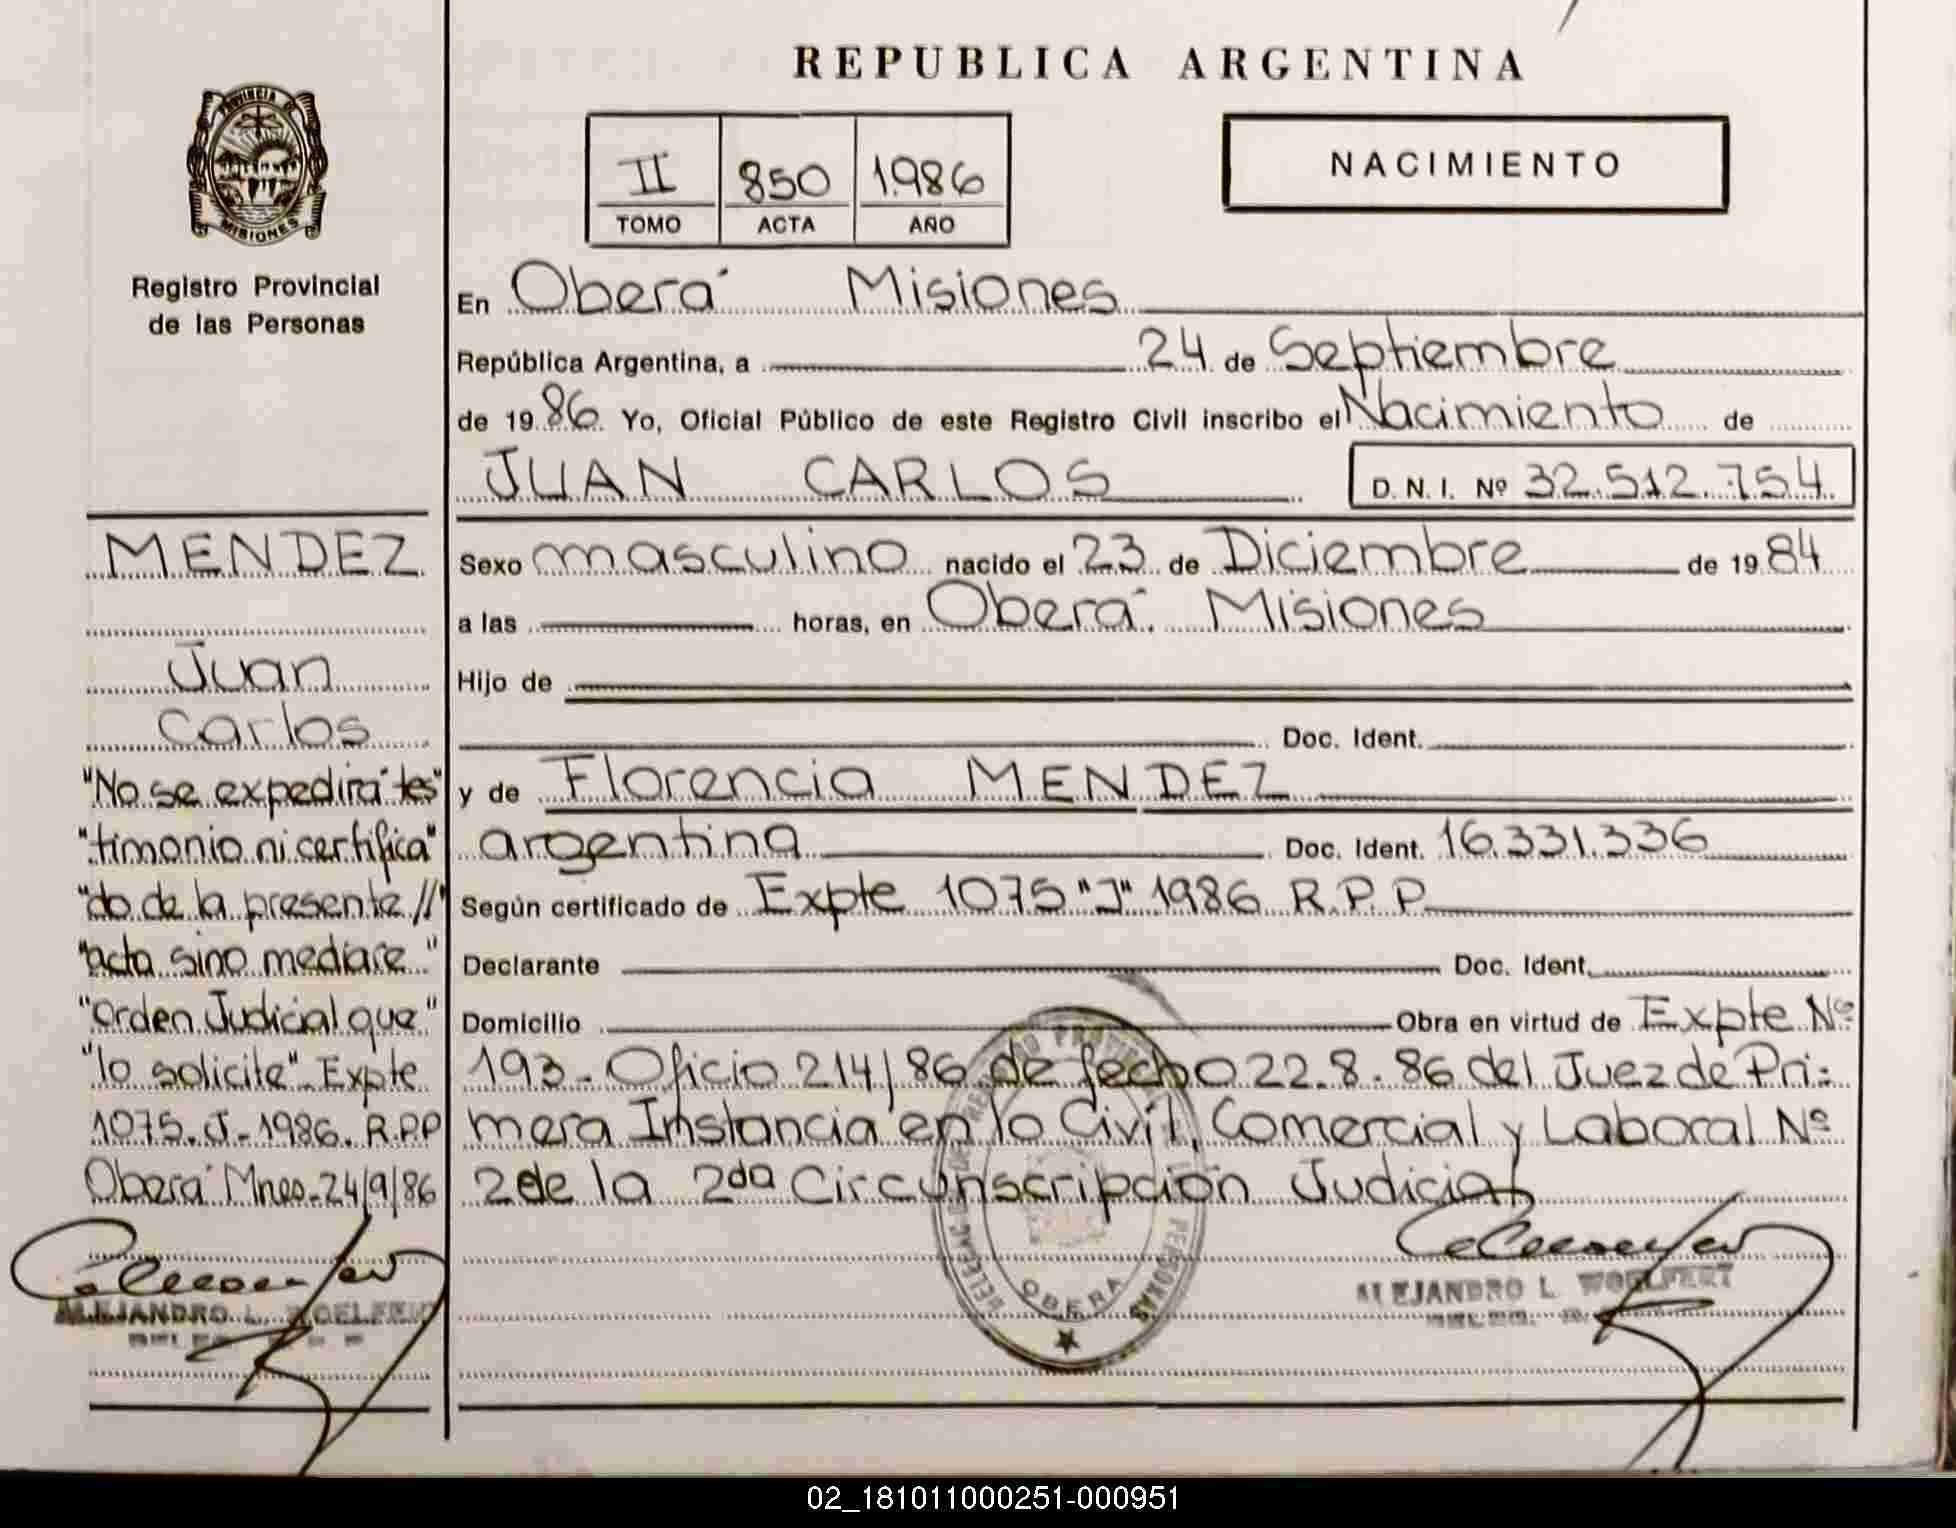 REPUBLICA ARGENTINA
PROVINCIA DE
MISIONES
Registro Provincial
de las Personas
II 850 1986
TOMO ACTA AÑO
NACIMIENTO
En Oberá Misiones
República Argentina, a 24 de Septiembre
de 1986 Yo, Oficial Público de este Registro Civil inscribo el Nacimiento de
JUAN CARLOS D.N.I. Nº 32.512.754
Sexo masculino nacido el 23 de Diciembre de 1984
a las horas, en Oberá. Misiones
Hijo de
Doc. Ident.
y de Florencia MENDEZ
argentina Doc. Ident. 16.331.336
Según certificado de Expte 1075 "J" 1986 R.P.P
Declarante Doc. Ident.
Domicilio Obra en virtud de Expte Nº
193 - Oficio 214/86 de fecha 22.8.86 del Juez de Pri-
mera Instancia en lo Civil, Comercial y Laboral Nº
2 de la 2da Circunscripción Judicial
MENDEZ
Juan
Carlos
"No se expedirá tes"
"timonio ni certifica"
"do de la presente //"
"acta sino mediare"
"Orden Judicial que"
"lo solicite" Expte
1075.J-1986. R.P.P
Oberá Mnes-24/9/86
ALEJANDRO L. WOELFERT
ALEJANDRO L. WOELFERT
OBERA
PERSONAS
02_181011000251-000951